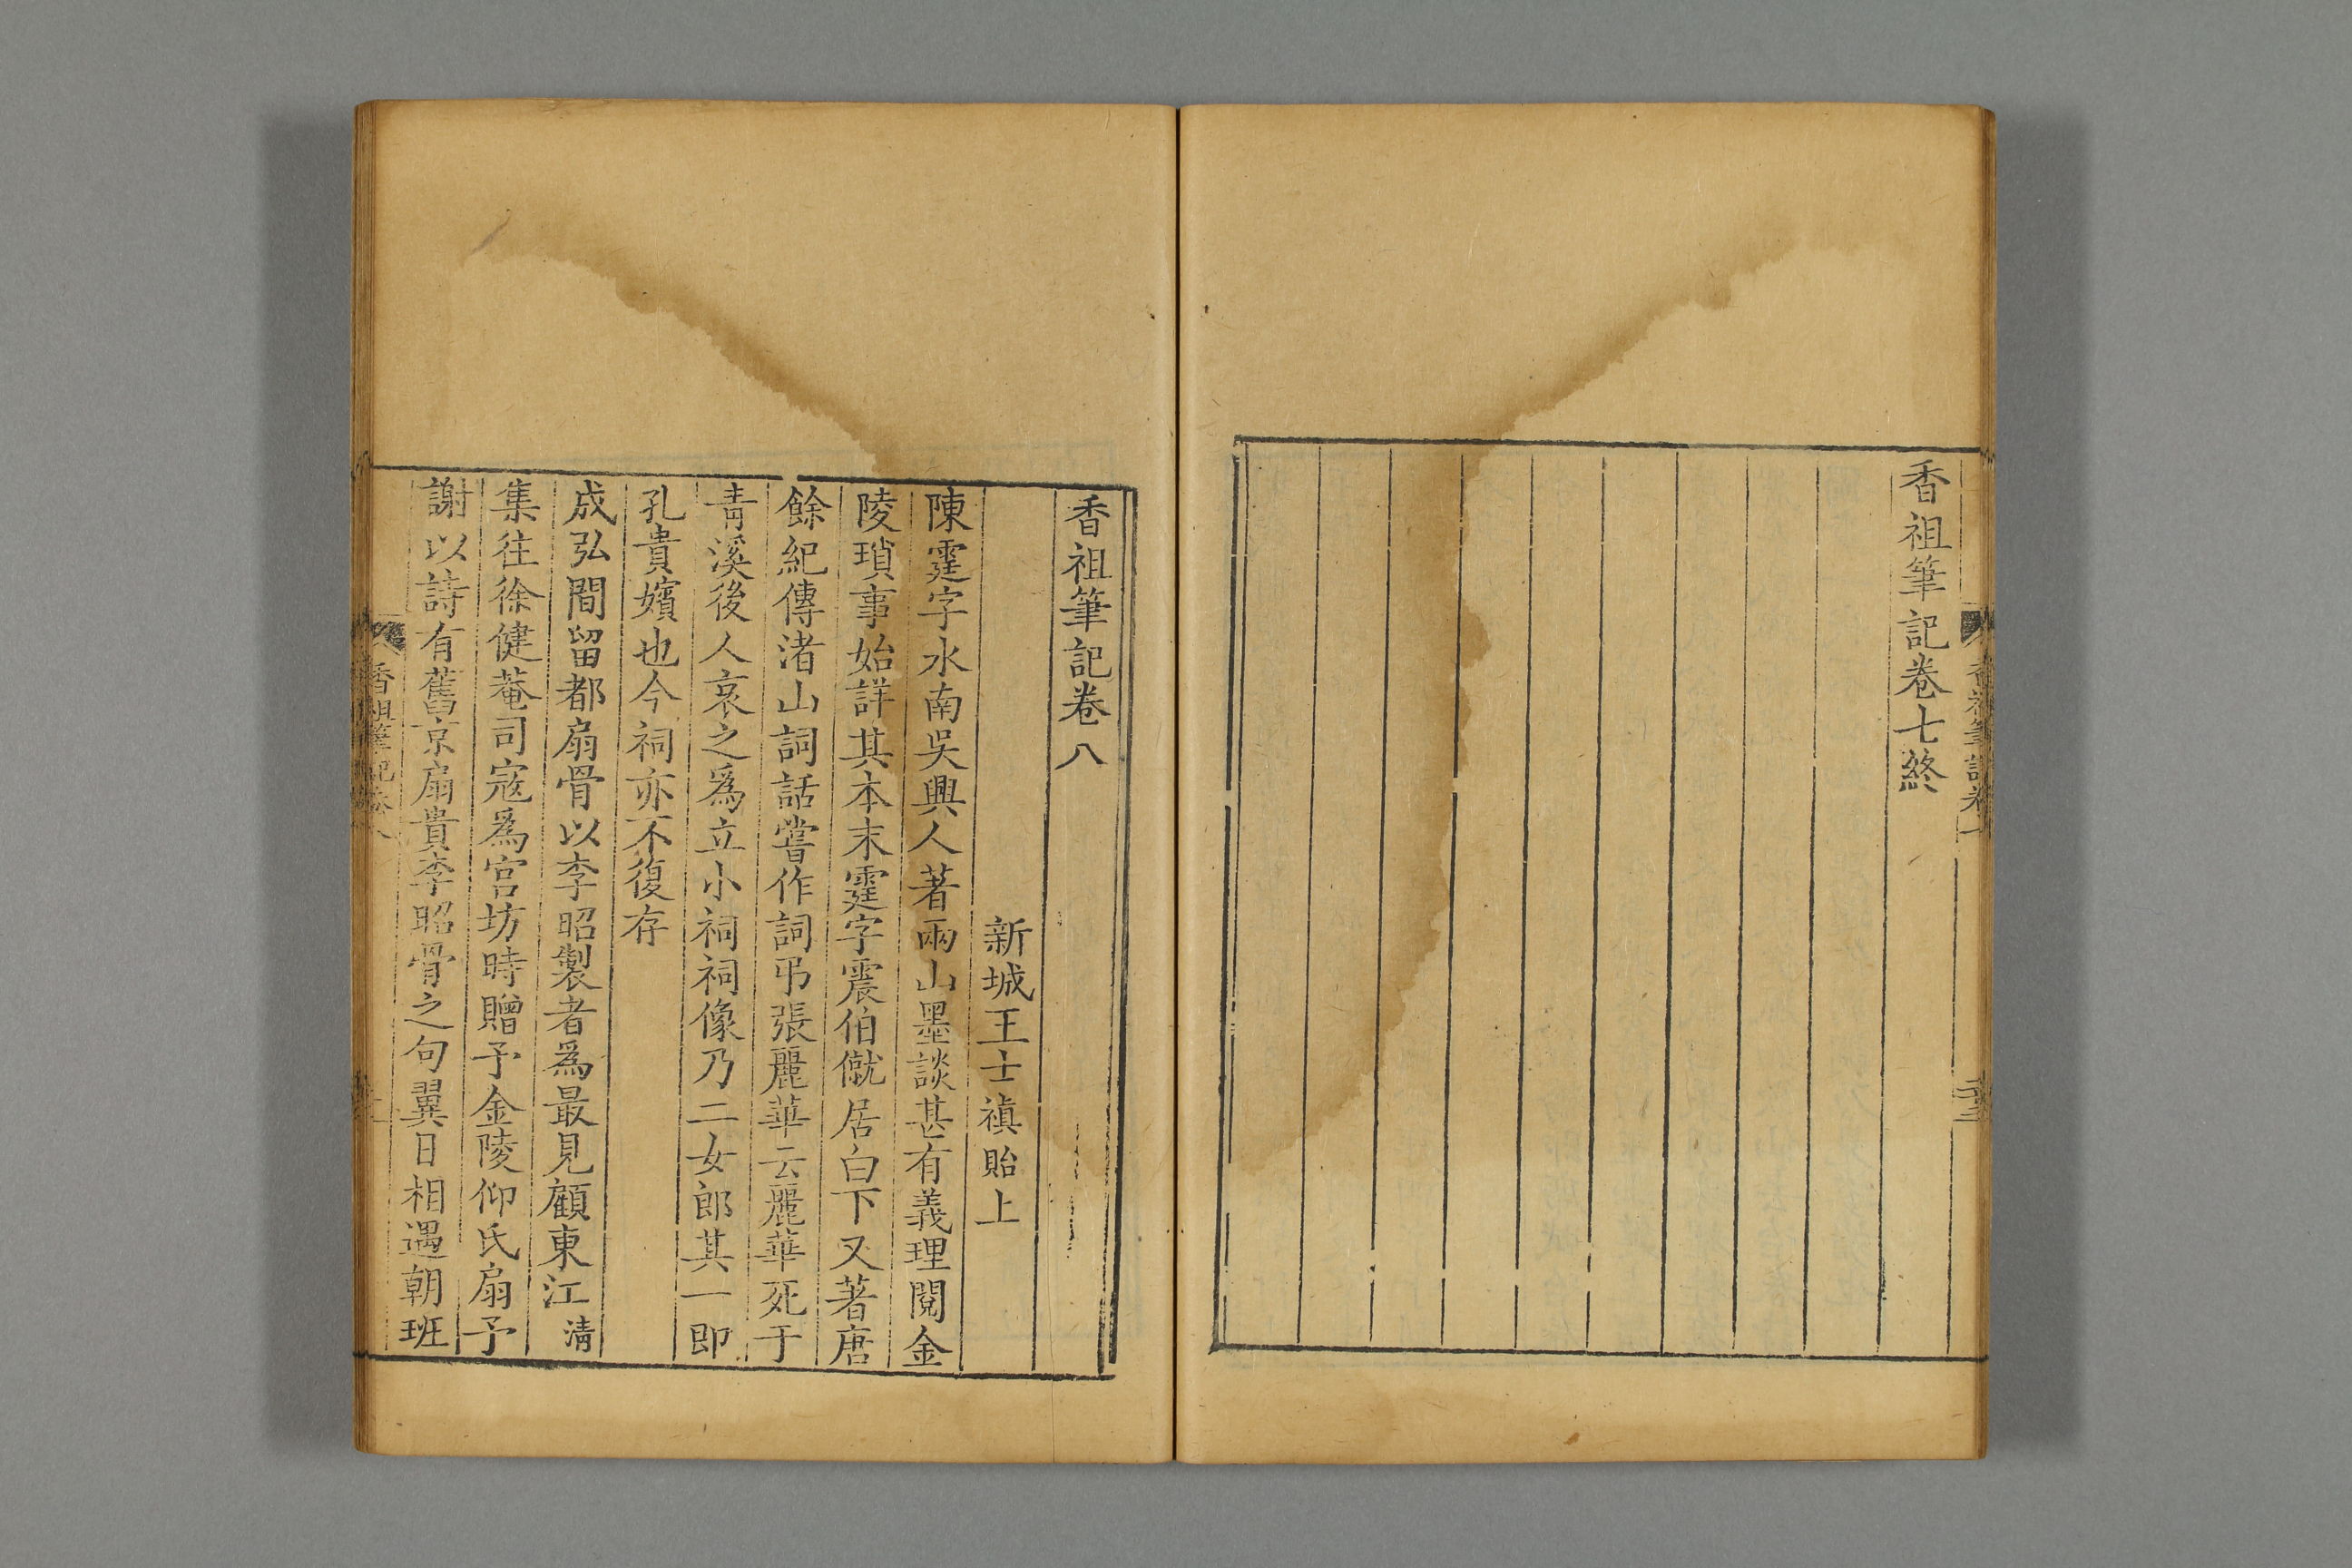 香祖筆記卷七終
香祖筆記卷
香祖筆記卷八
新城王士禛貽上
陳霆字水南吳興人著兩山墨談甚有義理閱金
陵瑣事始詳其本末霆字震伯僦居白下又著唐
餘紀傳渚山詞話嘗作詞弔張麗華云麗華死于
青溪後人哀之爲立小祠祠像乃二女郎其一即
孔貴嬪也今祠亦不復存
成弘間留都扇骨以李昭製者爲最見顧東江清
集往徐健菴司寇爲宮坊時贈予金陵仰氏扇予
謝以詩有舊京扇貴李昭骨之句翼日相遇朝班
香祖筆記卷八